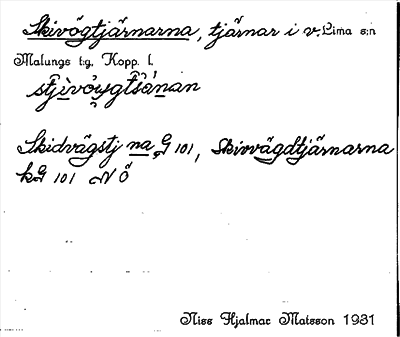 Skivögtjärnarna, tjärnar i v. Lima s:n
Malungs t:g, Kopp. l.
Skidvägstj na G 101, Skivvägdtjärnarna
kG 101 NÖ
Niss Hjalmar Matsson 1931